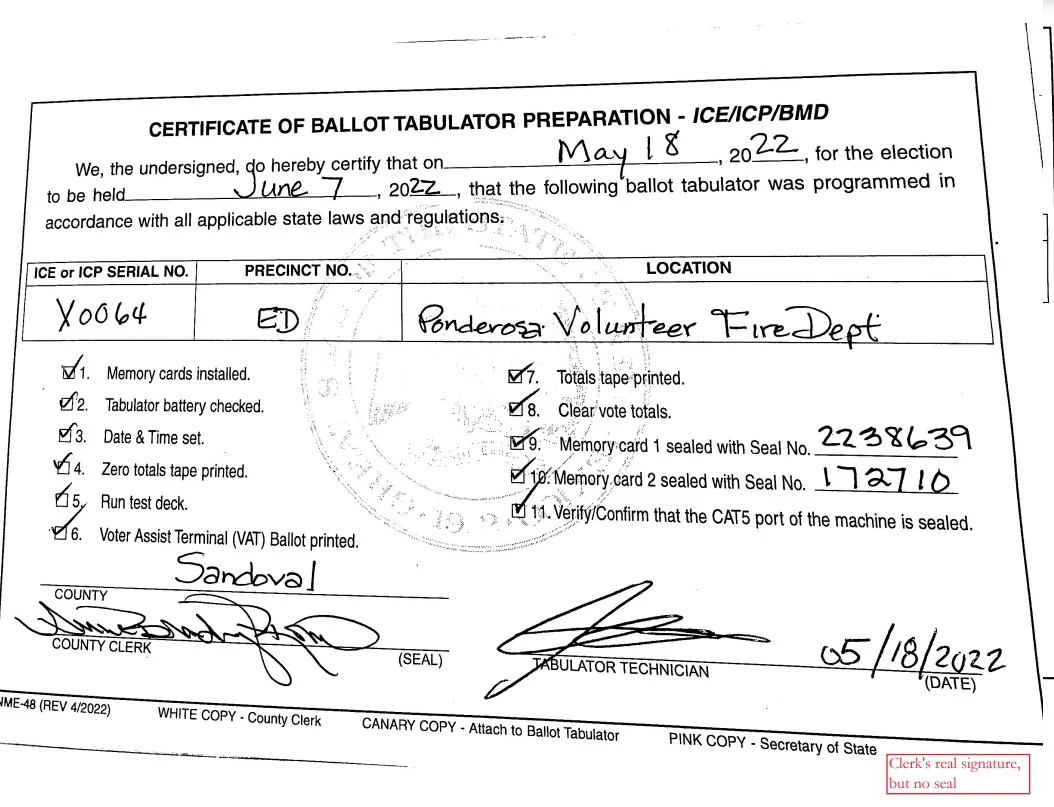 CERTIFICATE OF BALLOT TABULATOR PREPARATION - ICE/ICP/BMD
We, the undersigned, do hereby certify that on May 18, 2022, for the election
to be held June 7, 2022, that the following ballot tabulator was programmed in
accordance with all applicable state laws and regulations.
ICE or ICP SERIAL NO. PRECINCT NO. LOCATION
X0064 ED Ponderosa Volunteer Fire Dept
1. Memory cards installed.
2. Tabulator battery checked.
3. Date & Time set.
4. Zero totals tape printed.
5. Run test deck.
6. Voter Assist Terminal (VAT) Ballot printed.
7. Totals tape printed.
8. Clear vote totals.
9. Memory card 1 sealed with Seal No. 2238639
10. Memory card 2 sealed with Seal No. 172710
11. Verify/Confirm that the CAT5 port of the machine is sealed.
Sandoval
COUNTY
COUNTY CLERK
(SEAL)
TABULATOR TECHNICIAN
05/18/2022
(DATE)
NME-48 (REV 4/2022) WHITE COPY - County Clerk CANARY COPY - Attach to Ballot Tabulator PINK COPY - Secretary of State
Clerk's real signature,
but no seal